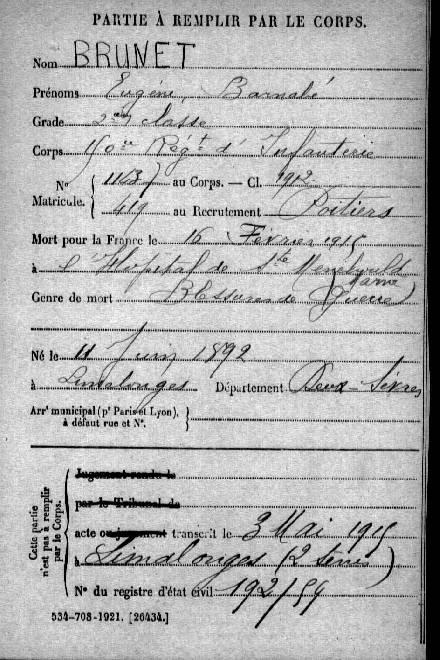 PARTIE À REMPLIR PAR LE CORPS.
Nom BRUNET
Prénoms Eugène, Barnabé
Grade 2me classe
Corps Regt d'Infanterie
No 1143 au Corps. — Cl. 1912
Matricule. 419 au Recrutement Poitiers
Mort pour la France le 16 Février 1915
à l'Hôpital de Ste Menehould
Marne
Genre de mort Blessures de Guerre
Né le 11 Juin 1892
à Limalonges Département Deux-Sèvres
Arrt municipal (pr Paris et Lyon),
à défaut rue et No.
Cette partie
n'est pas à remplir
par le Corps.
Jugement rendu le
par le Tribunal de
acte ou jugement transcrit le 3 Mai 1915
à Limalonges (2 Sèvres)
No du registre d'état civil 192/54
534-708-1921. [26434.]